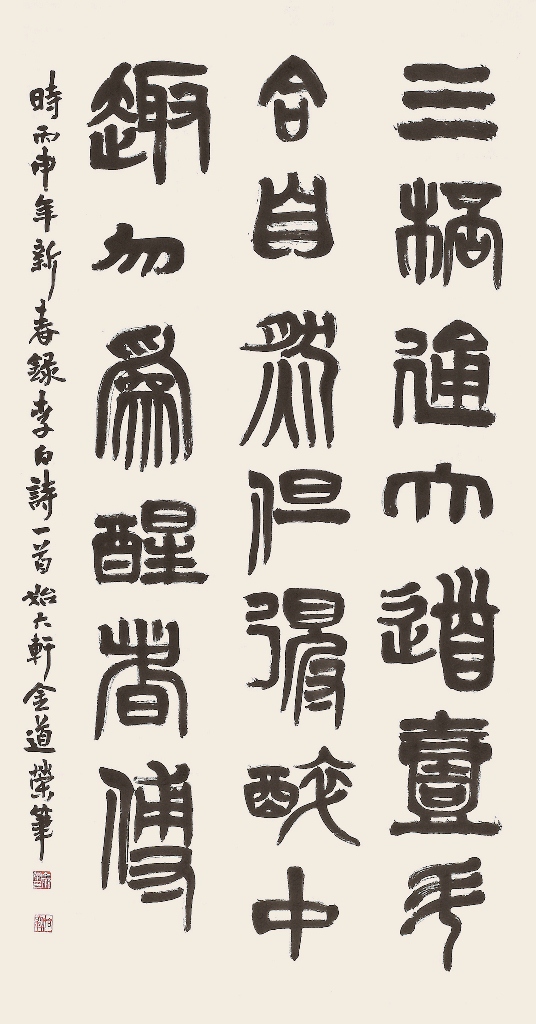 三桮通大道壹斗
合自然但得醉中
趣勿為醒者傳
時丙申年新春錄李白詩一首始大軒金道榮筆